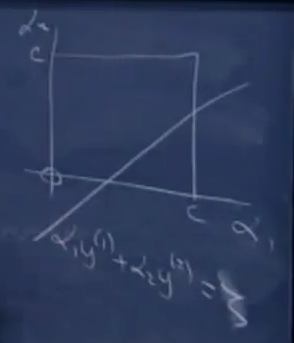 α₂
C
C
α₁
α₁y⁽¹⁾+α₂y⁽²⁾=ξ